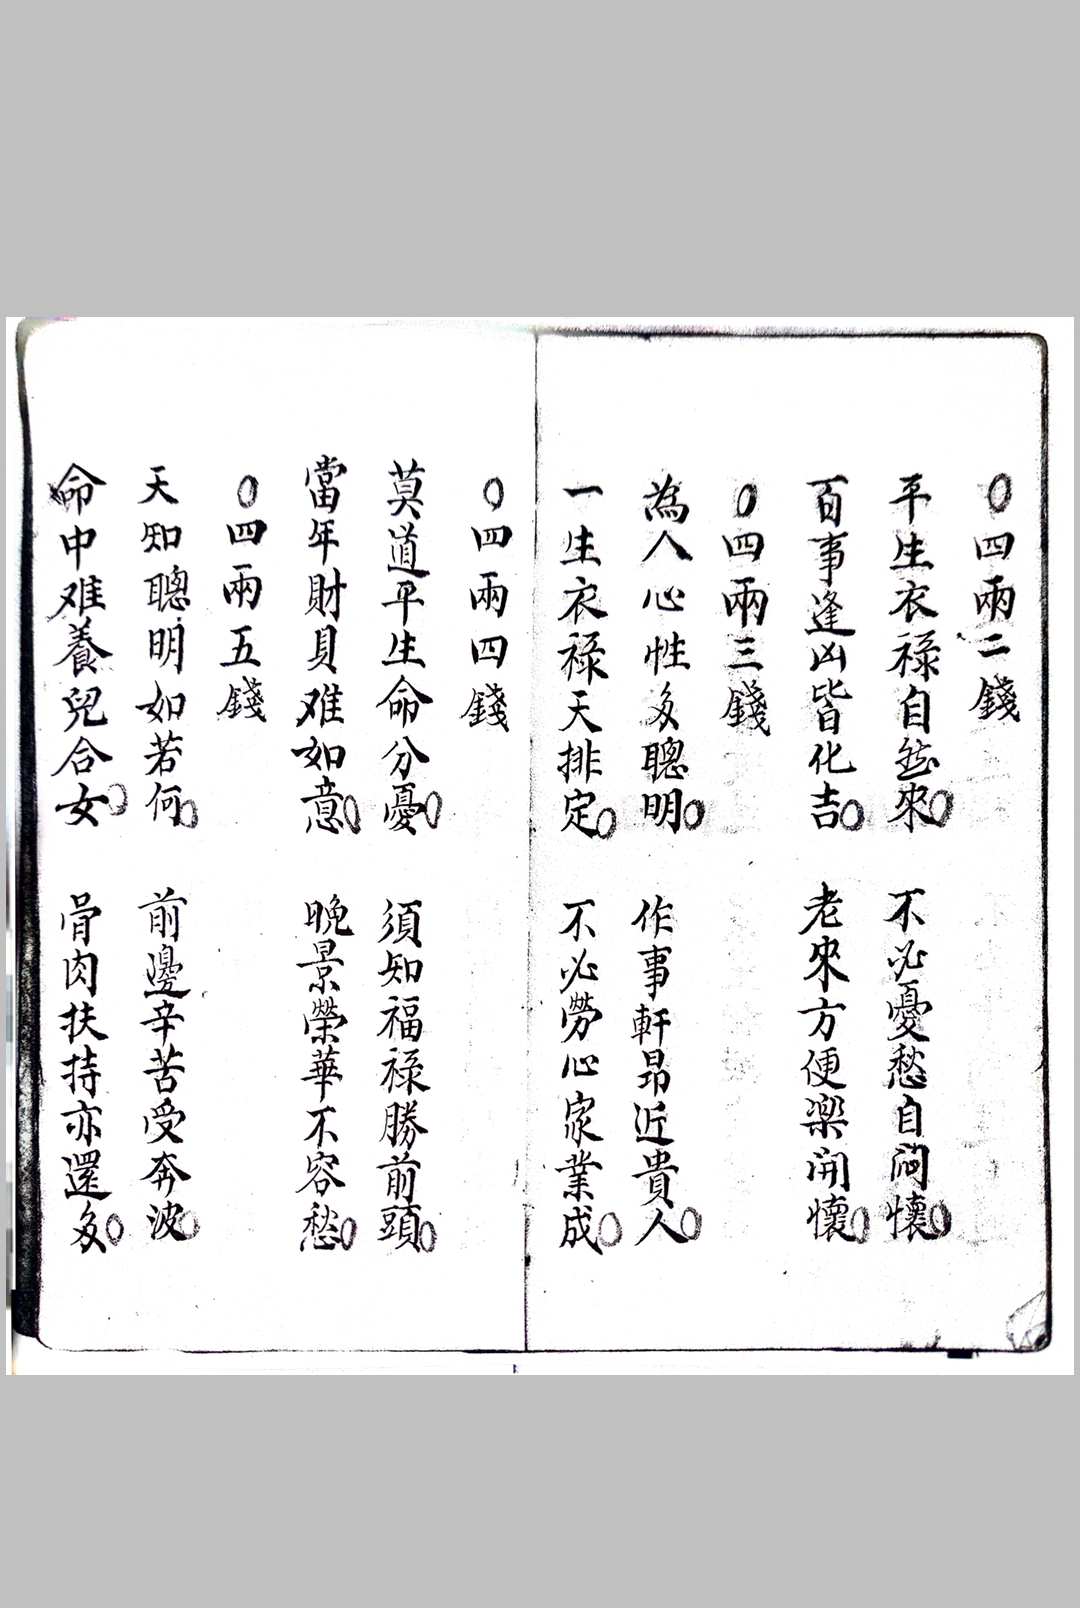 〇四兩二錢
平生衣祿自然來〇 不必憂愁自悶懷〇
百事逢凶皆化吉〇 老來方便樂開懷〇
〇四兩三錢
為人心性多聰明〇 作事軒昂近貴人〇
一生衣祿天排定〇 不必勞心家業成〇
〇四兩四錢
莫道平生命分憂〇 須知福祿勝前頭〇
當年財貝难如意〇 晚景榮華不容愁〇
〇四兩五錢
天知聰明如若何〇 前邊辛苦受奔波〇
命中难養兒合女〇 骨肉扶持亦還多〇